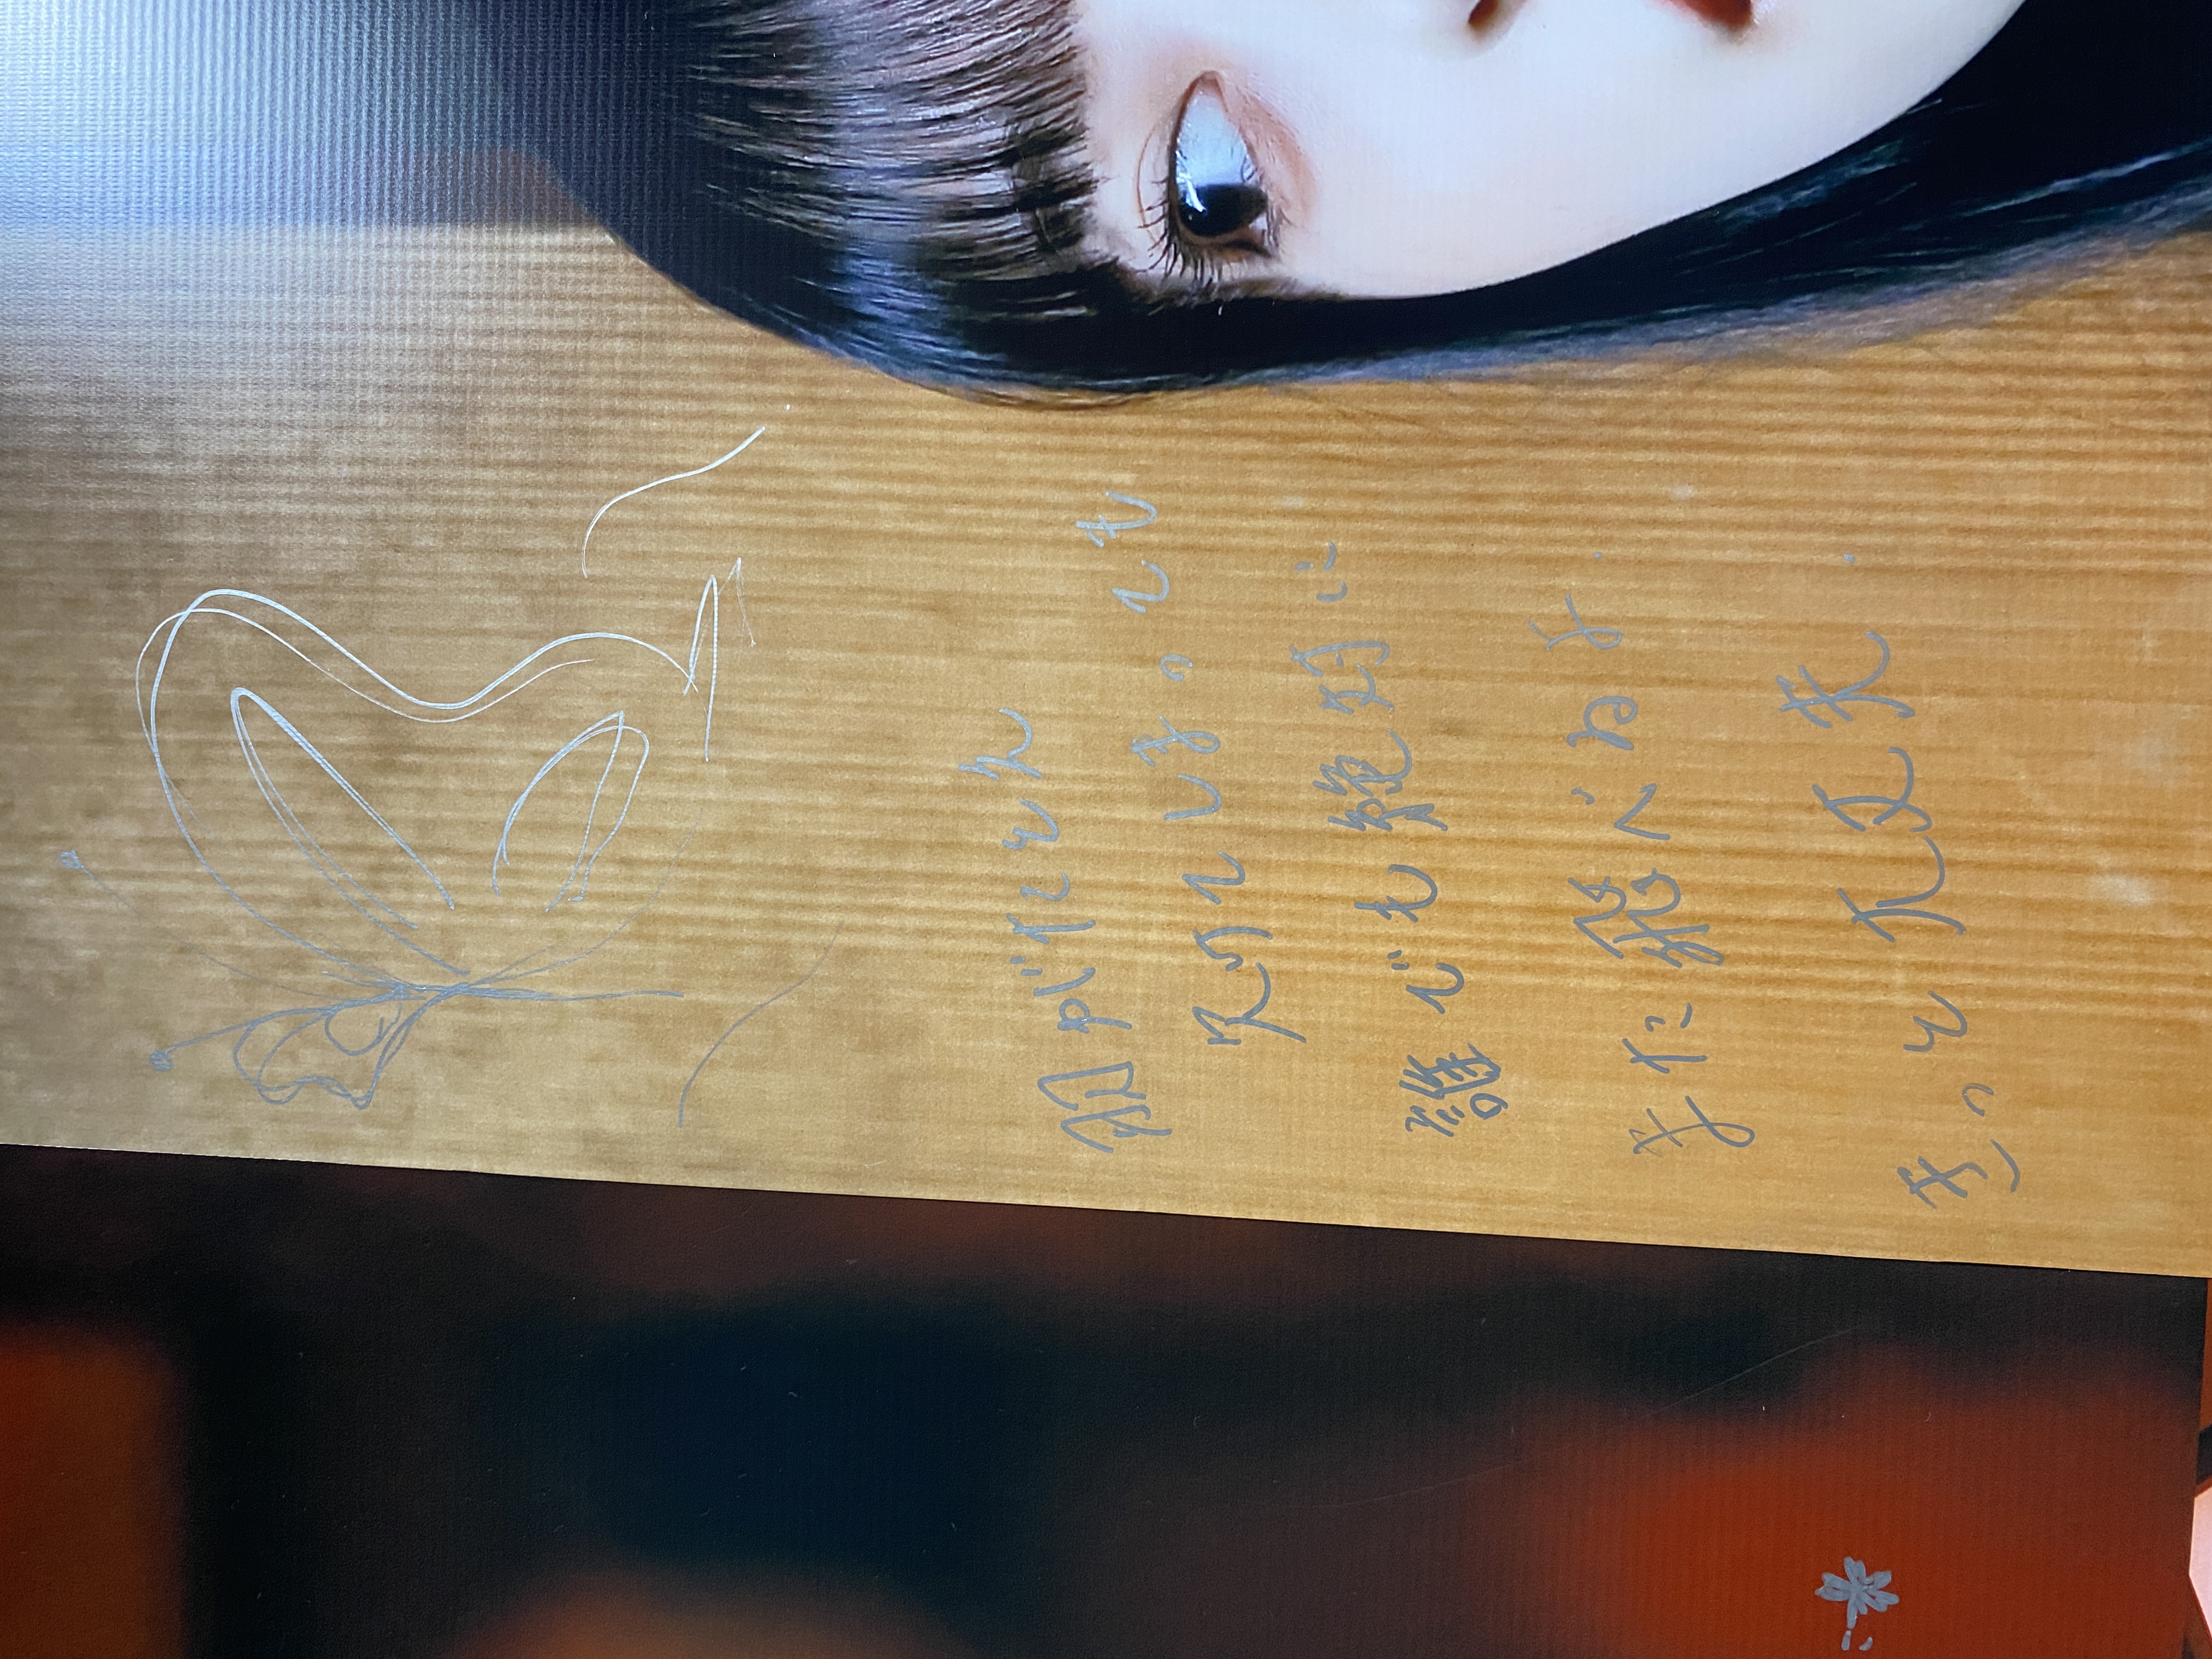 羽がたとえ
欠けてしまっても
誰でも絶対に
また飛べるよ.
きっと大丈夫.